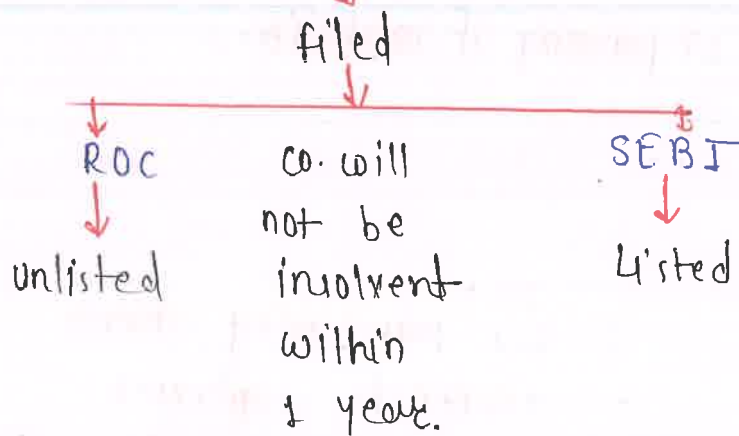 filed
ROC
unlisted
co. will
not be
insolvent
within
1 year.
SEBI
Listed